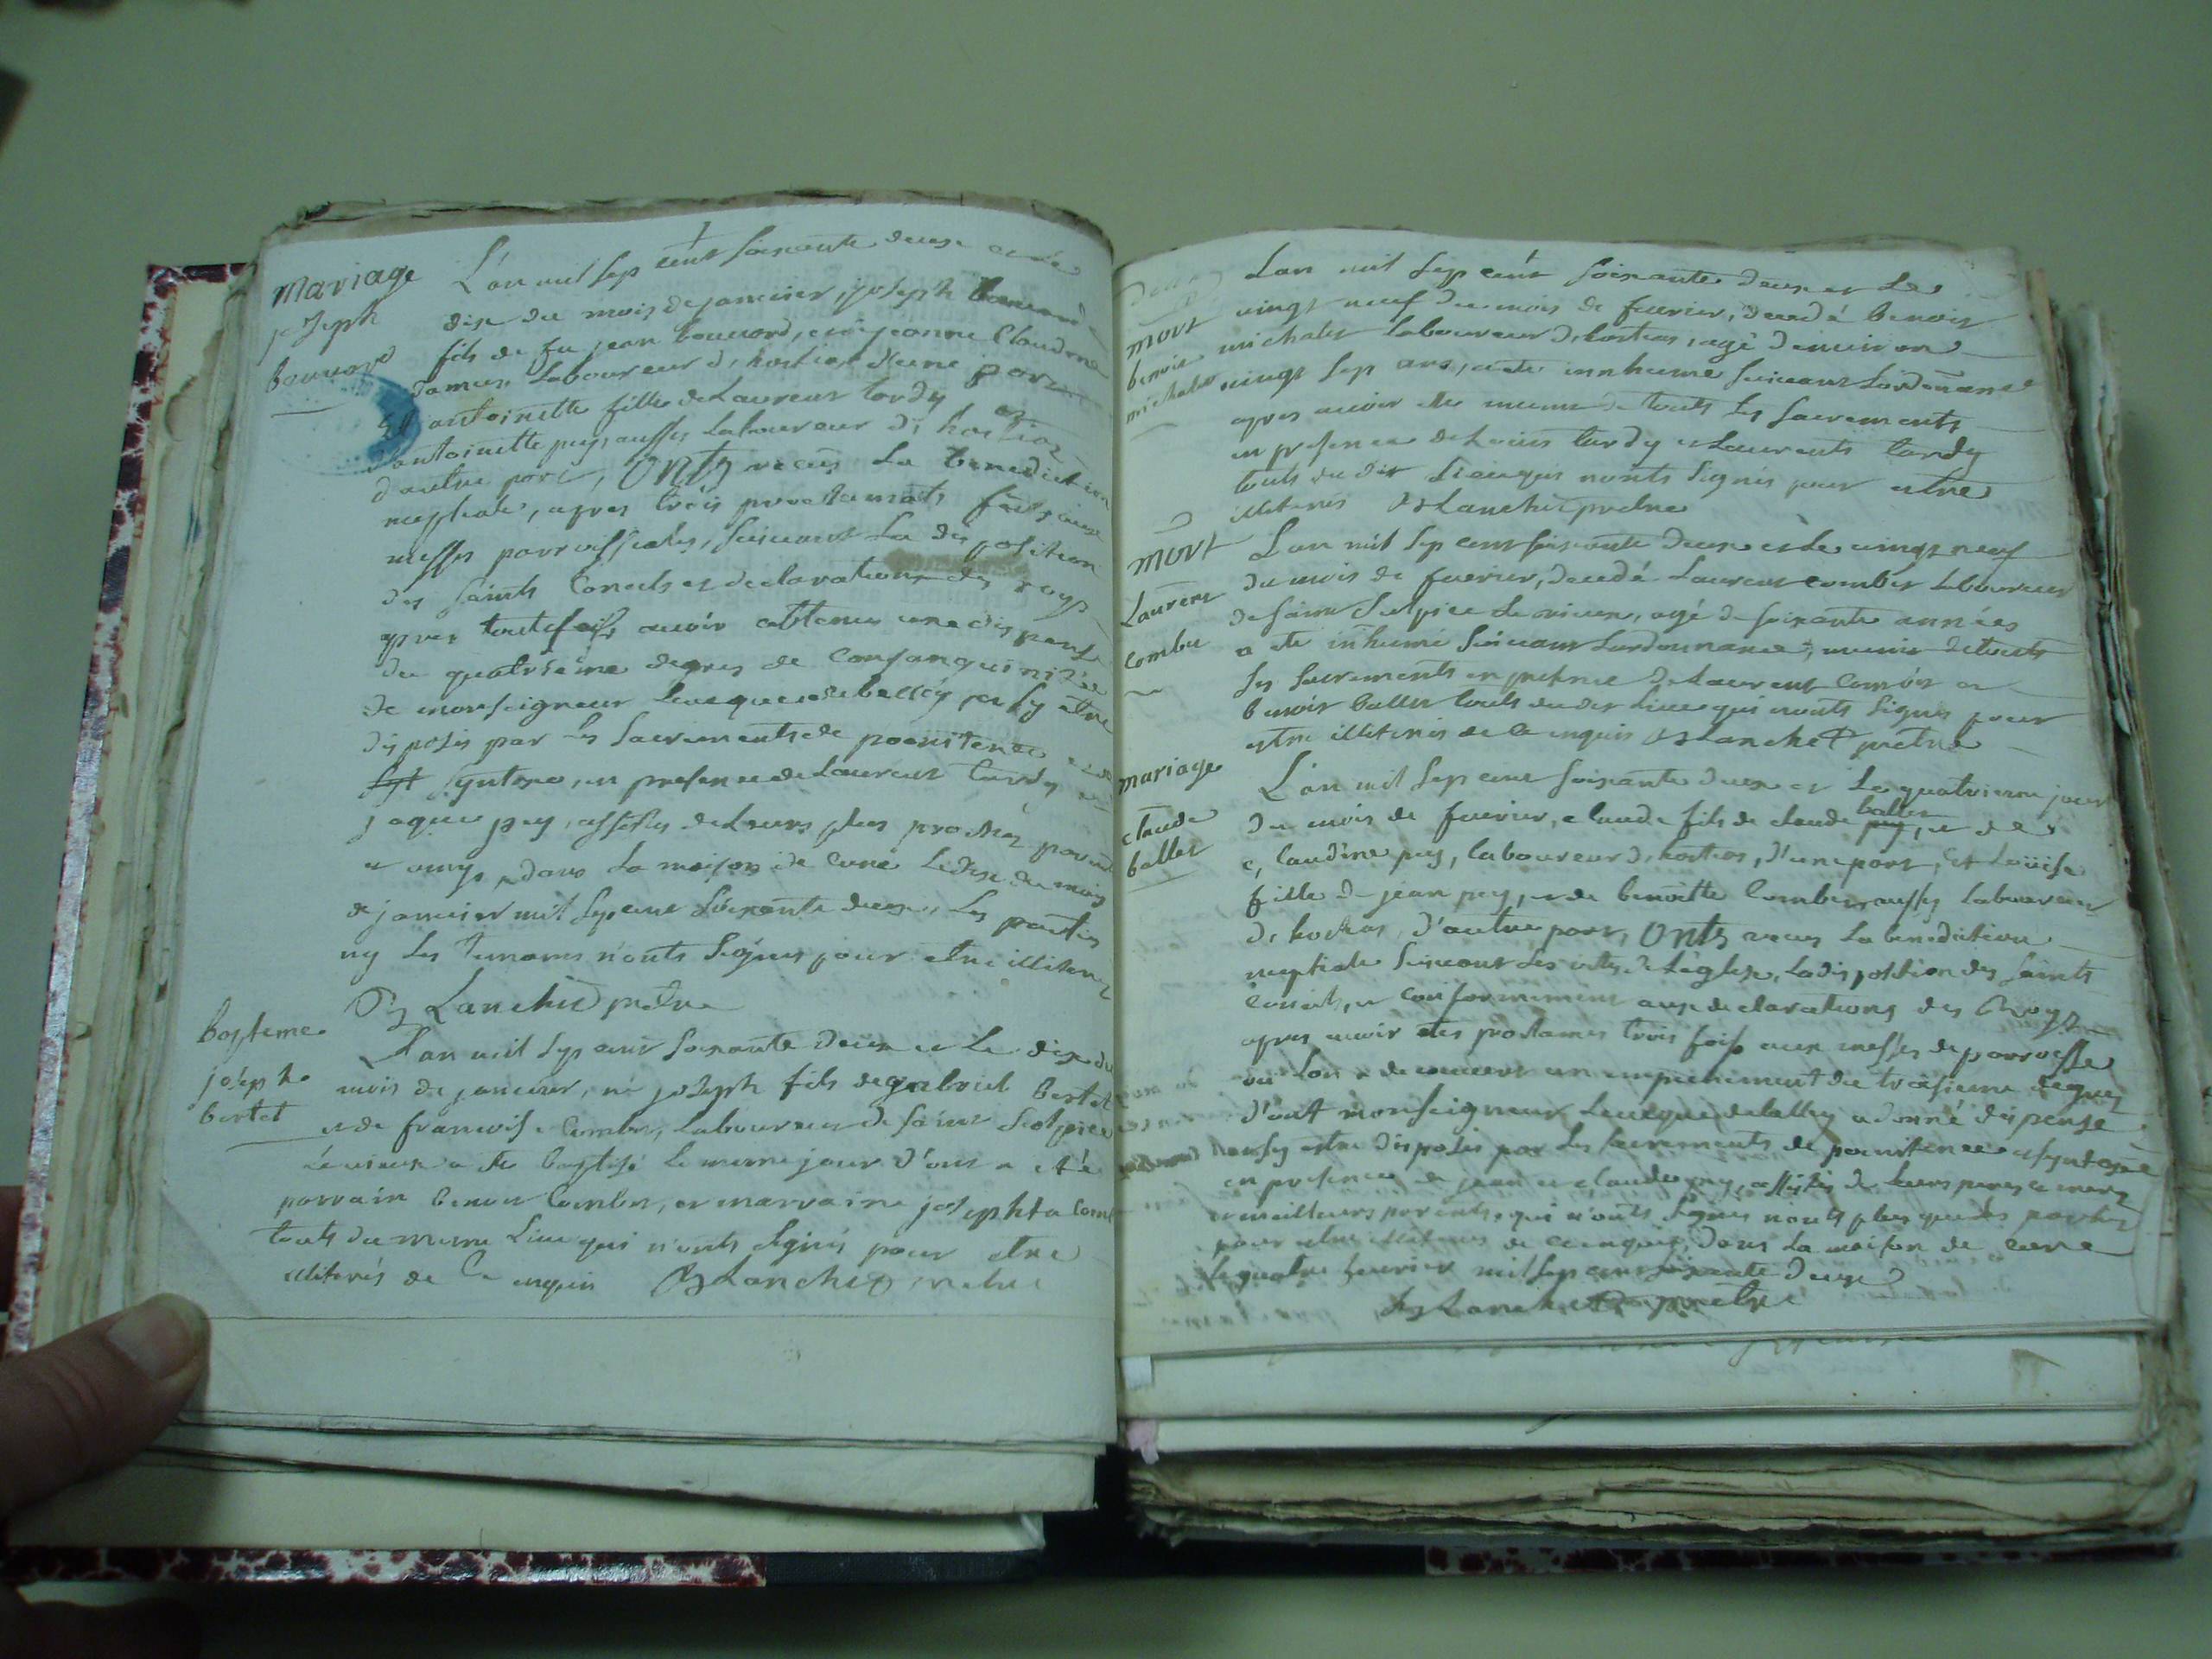 Mariage
joseph
bouvard
L'an mil sep cent soixante deux et le
dix du mois de janvier, joseph bouvard
fils de fu jean bouvard, et de jeanne Claudine
laboureur d'hostias d'une part
et antoinette fille de Laurent tardy et
d'antoinette pey, aussy laboureur d'hostias
d'autre part, onts recus la benediction
nuptiale, apres trois proclamats faits aux
messes parroissiales, suivant la disposition
des saints Conciles et declarations des roys
apres toutefois avoir obtenu une dispense
du quatrieme degres de consanguinitée
de monseigneur leveque de belley et sy etre
disposés par les sacrements de poenitence et de
synteze, en presence de Laurent tardy et
jaque pey, assistés de leurs plus proches parents
et amys, dans la maison de cure le dix du mois
de janvier mil sep cent soixante deux, les parties
ny les temoins n'onts signés pour etre illiterés
Blanchet pretre
bapteme
joseph
bertet
L'an mil sep cent soixante deux et le dix du
mois de janvier, né joseph fils de gabriel bertet
et de francoise Combet, laboureur de saint Sulpice
le vieux a ete baptisé le meme jour d'ont a eté
parrain benoit Combet, et marraine josephta Comb
touts du meme lieu qui n'onts signés pour etre
illiterés de ce enquis Blanchet pretre
mort
benoit
michalet
L'an mil sep cent soixante deux et le
vingt neuf du mois de fevrier, decedé benoit
michalet laboureur d'hostias, agé d'environ
vingt sep ans, a ete innhumé suivant l'ordonnance
apres avoir ete muni de touts les sacrements
en presence de Louis tardy et Laurents tardy
touts du dit lieu qui n'onts signés pour etre
illiterés Blanchet pretre
mort
Laurent
Combet
L'an mil sep cent soixante deux et le vingt neuf
du mois de fevrier, decedé Laurent combet laboureur
de saint Sulpice le vieux, agé de soixante années
a ete inhumé suivant l'ordonnance, muni de touts
les sacrements en presence de Laurent Combet et
benoit ballet touts du dit lieu qui n'onts signés pour
estre illiterés de ce enquis Blanchet pretre
mariage
claude
ballet
L'an mil sep cent soixante deux et le quatrieme jour
du mois de fevrier, claude fils de claude ballet, et de
claudine pey, laboureur d'hostias, d'une part, et Loüise
fille de jean pey, et de benoitte Combet aussy laboureur
d'hostias, d'autre part, onts recus la benediction
nuptiale suivant les rites de l'eglise, la disposition des saints
conciles, et conformement aux declarations des Roys
apres avoir etes proclamés trois fois aux messes de parroisse
ou l'on a decouvert un empechement du troisieme degres
d'ont monseigneur leveque de belley a donné dispense
et sy estre disposés par les sacrements de poenitence et synteze
en presence de jean et claude pey, assistés de leurs peres et meres
et meilleurs parents, qui n'onts signés nonts plus que les parties
pour etre illiterés de ce enquis, dans la maison de cure
le quatre fevrier mil sep cent soixante deux
Blanchet pretre